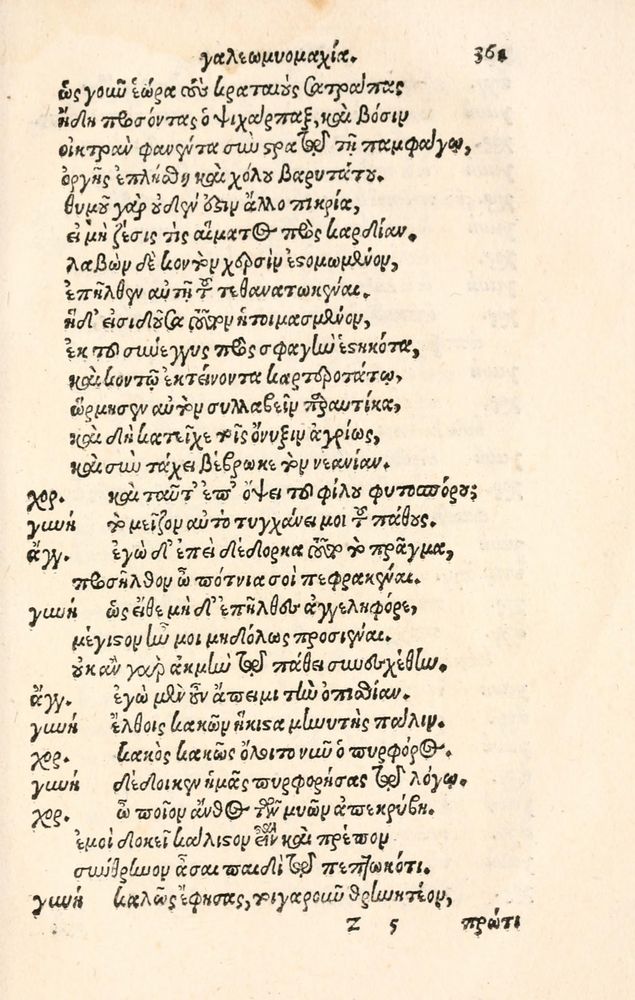 γαλεωμυομαχία. 361
ὡς γοιῶ ἑώρα τοὺς κραταιοὺς σατράπας
ἤδη πεσόντας ὁ ψιχάρπαξ, καὶ βόσιν
οἰκτρὰν φανέντα σὺν στρατῷ τῇ παμφάγῳ,
ὀργῆς ἐπλήσθη καὶ χόλου βαρυτάτου.
θυμοῦ γὰρ οὐδέν ἐστιν ἄλλο πικρία,
εἰ μὴ ζέσις τις αἵματος πρὸς καρδίαν.
λαβὼν δὲ κοντὸν χερσὶν ἐστομωμένον,
ἐπῆλθεν αὐτῇ τοῦ τεθανατωκέναι.
ἡ δ' εἰσιδοῦσα τοῦτον ἡτοιμασμένον,
ἐκ τοῦ σύνεγγυς πρὸς σφαγὴν ἑστηκότα,
καὶ κοντῷ ἐκτείνοντα καρτερωτάτῳ,
ὥρμησεν αὐτὸν συλλαβεῖν παραυτίκα,
καὶ δὴ κατεῖχε τοῖς ὄνυξιν ἀγρίως,
καὶ σὺν τάχει βέβρωκε τὸν νεανίαν.
χορ. καὶ ταῦτ' ἐπ' ὄψει τοῦ φίλου φυτοσπόρου;
γυνή τὸ μεῖζον αὐτὸ τυγχάνει μοι τοῦ πάθους.
ἄγγ. ἐγὼ δ' ἐπεὶ δέδορκα τοῦτο τὸ πρᾶγμα,
προσῆλθον ὦ πότνια σοὶ πεφρακέναι.
γυνή ὡς εἴθε μὴ δ' ἐπῆλθες ἀγγεληφόρε,
μέγιστον ἦν μοι μηδόλως προσιέναι.
οὐκ ἂν γὰρ ἀκμὴν τῷ πάθει συνεσχέθην.
ἄγγ. ἐγὼ μὲν οὖν ἄπειμι τὴν ὀπισθίαν.
γυνή ἔλθοις κακῶν ἥκιστα μηνυτὴς πάλιν.
χορ. κακὸς κακῶς ὄλοιτο νῦν ὁ πυρφόρος.
γυνή δέδοικεν ἡμᾶς πυρφορήσας τῷ λόγῳ.
χορ. ὦ ποῖον ἄνθος τῶν μυῶν ἀπεκρύβη.
ἐμοὶ δοκεῖ κάλιστον εἶναι καὶ πρέπον
σύνθρηνον ᾆσαι παιδὶ τῷ πεπτωκότι.
γυνή καλῶς ἔφησας, τοιγαροῦν θρηνητέον,
Z 5 πρώτι